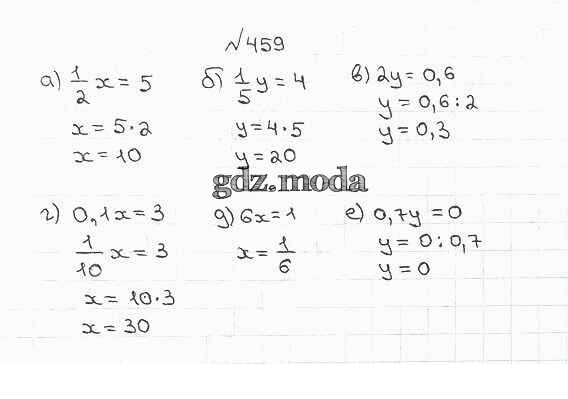 №459
а) 1/2 x = 5
x = 5·2
x = 10
б) 1/5 y = 4
y = 4·5
y = 20
в) 2y = 0,6
y = 0,6 : 2
y = 0,3
gdz.moda
г) 0,1x = 3
1/10 x = 3
x = 10·3
x = 30
д) 6x = 1
x = 1/6
е) 0,7y = 0
y = 0 : 0,7
y = 0